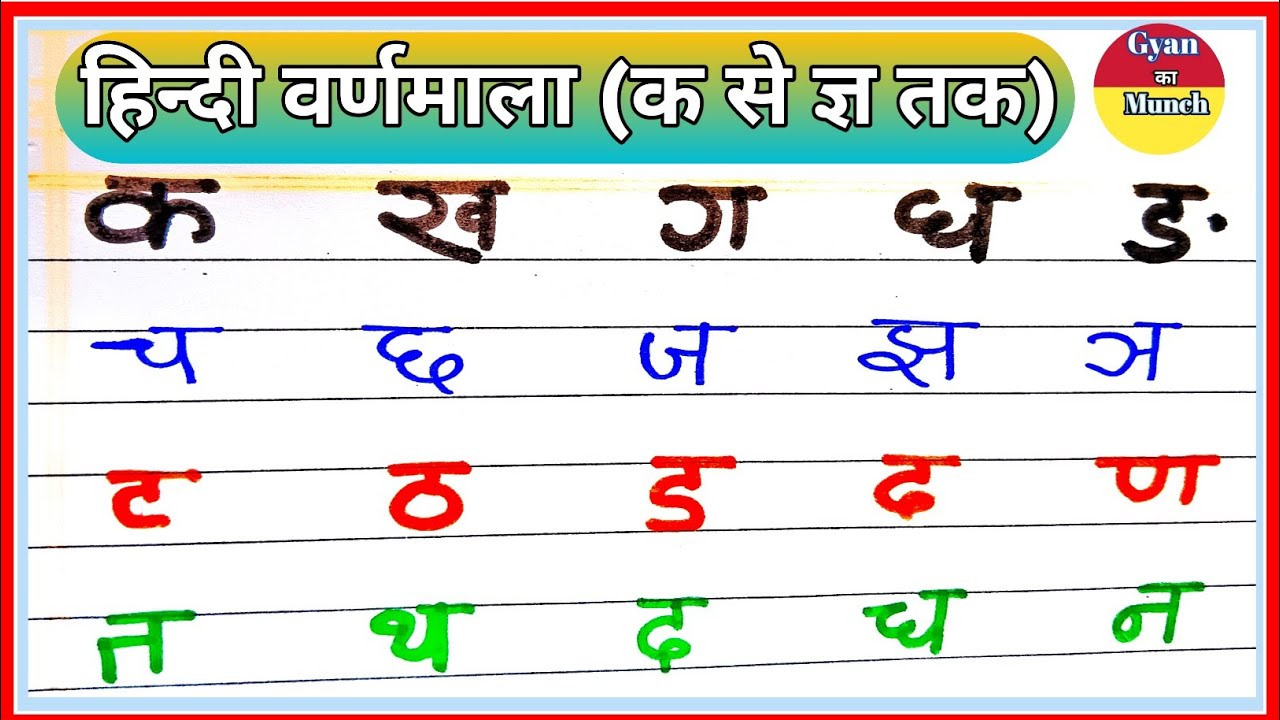 हिन्दी वर्णमाला (क से ज्ञ तक)
Gyan
का
Munch
क ख ग घ ङ
च छ ज झ ञ
ट ठ ड ढ ण
त थ द ध न